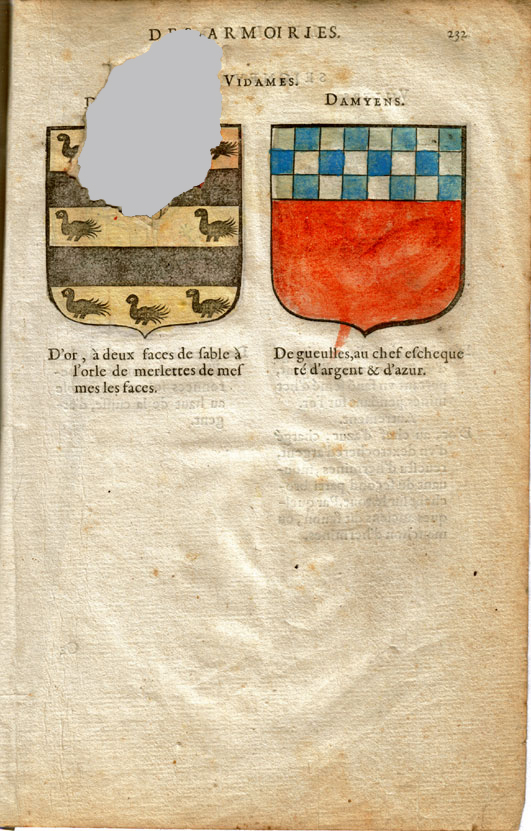 ARMOIRIES. 232
VIDAMES.
DAMYENS.
D'or, à deux faces de sable à
l'orle de merlettes de mes
mes les faces.
De gueulles, au chef eschequeté
té d'argent & d'azur.